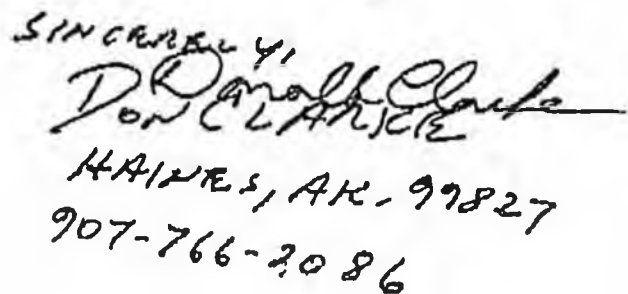 SINCERELY,
Donald Clarke
DON CLARKE
HAINES, AK. 99827
907-766-2086